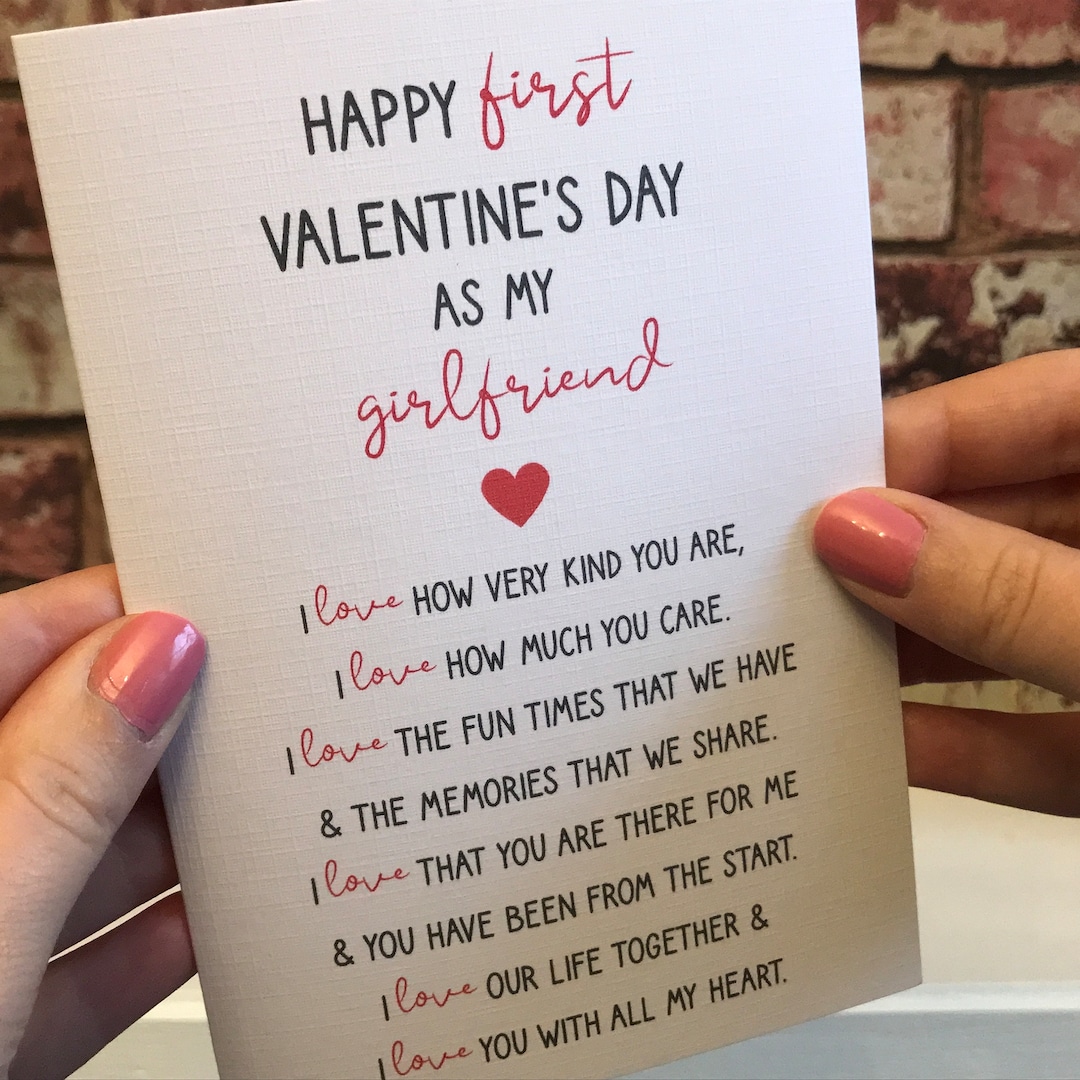 HAPPY first
VALENTINE'S DAY
AS MY
girlfriend
I love HOW VERY KIND YOU ARE,
I love HOW MUCH YOU CARE.
I love THE FUN TIMES THAT WE HAVE
& THE MEMORIES THAT WE SHARE.
I love THAT YOU ARE THERE FOR ME
& YOU HAVE BEEN FROM THE START.
I love OUR LIFE TOGETHER &
I love YOU WITH ALL MY HEART.